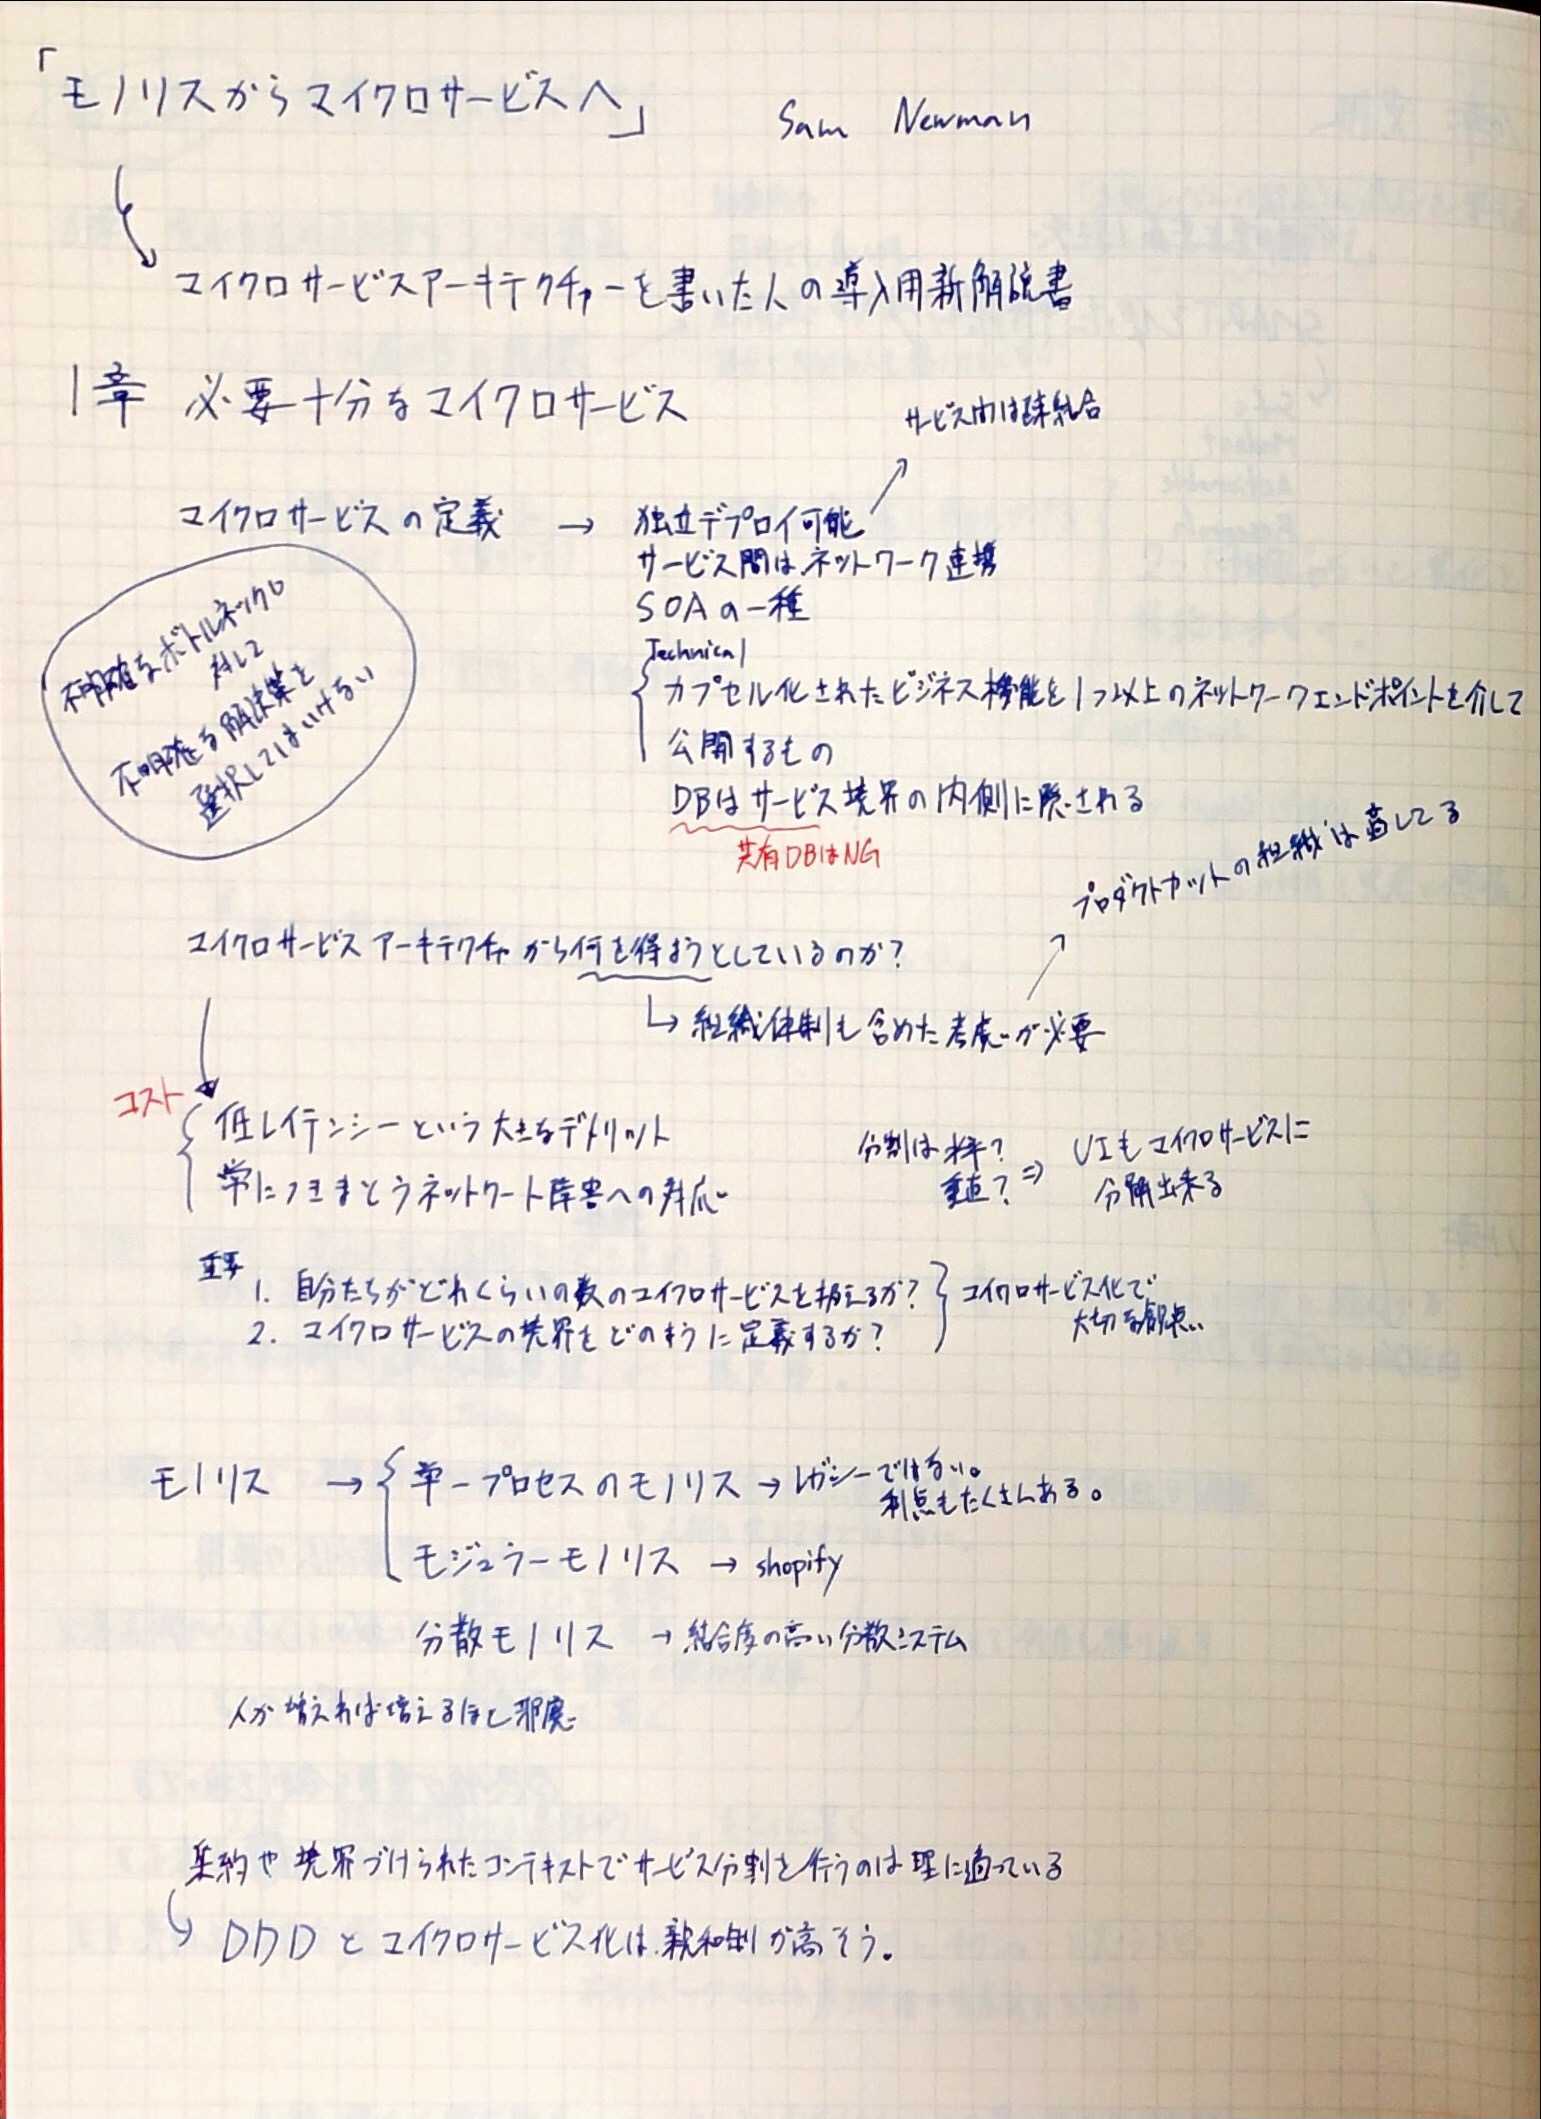 「モノリスからマイクロサービスへ」 Sam Newman
マイクロサービスアーキテクチャーを書いた人の導入用新解説書
1章 必要十分なマイクロサービス
サービス間は疎結合
マイクロサービスの定義 → 独立デプロイ可能
サービス間はネットワーク連携
SOAの一種
Technical
カプセル化されたビジネス機能を1つ以上のネットワークエンドポイントを介して
公開するもの
DBはサービス境界の内側に隠される
共有DBはNG
不明確なボトルネックに
対して
不明確な解決策を
選択してはいけない
プロダクトカットの組織は適してる
マイクロサービスアーキテクチャから何を得ようとしているのか?
↳ 組織体制も含めた考慮が必要
コスト
低レイテンシーという大きなデメリット
常につきまとうネットワート障害への対応
分割は水平?
垂直? ⇒ UIもマイクロサービスに
分解出来る
重要
1. 自分たちがどれくらいの数のマイクロサービスを扱えるか?
2. マイクロサービスの境界をどのように定義するか?
マイクロサービス化で
大切な観点
モノリス → 単一プロセスのモノリス → レガシーではない。
利点もたくさんある。
モジュラーモノリス → shopify
分散モノリス → 結合度の高い分散システム
人が増えれば増えるほど邪魔
集約や境界づけられたコンテキストでサービス分割を行うのは理に適っている
DDDとマイクロサービス化は親和性が高そう。